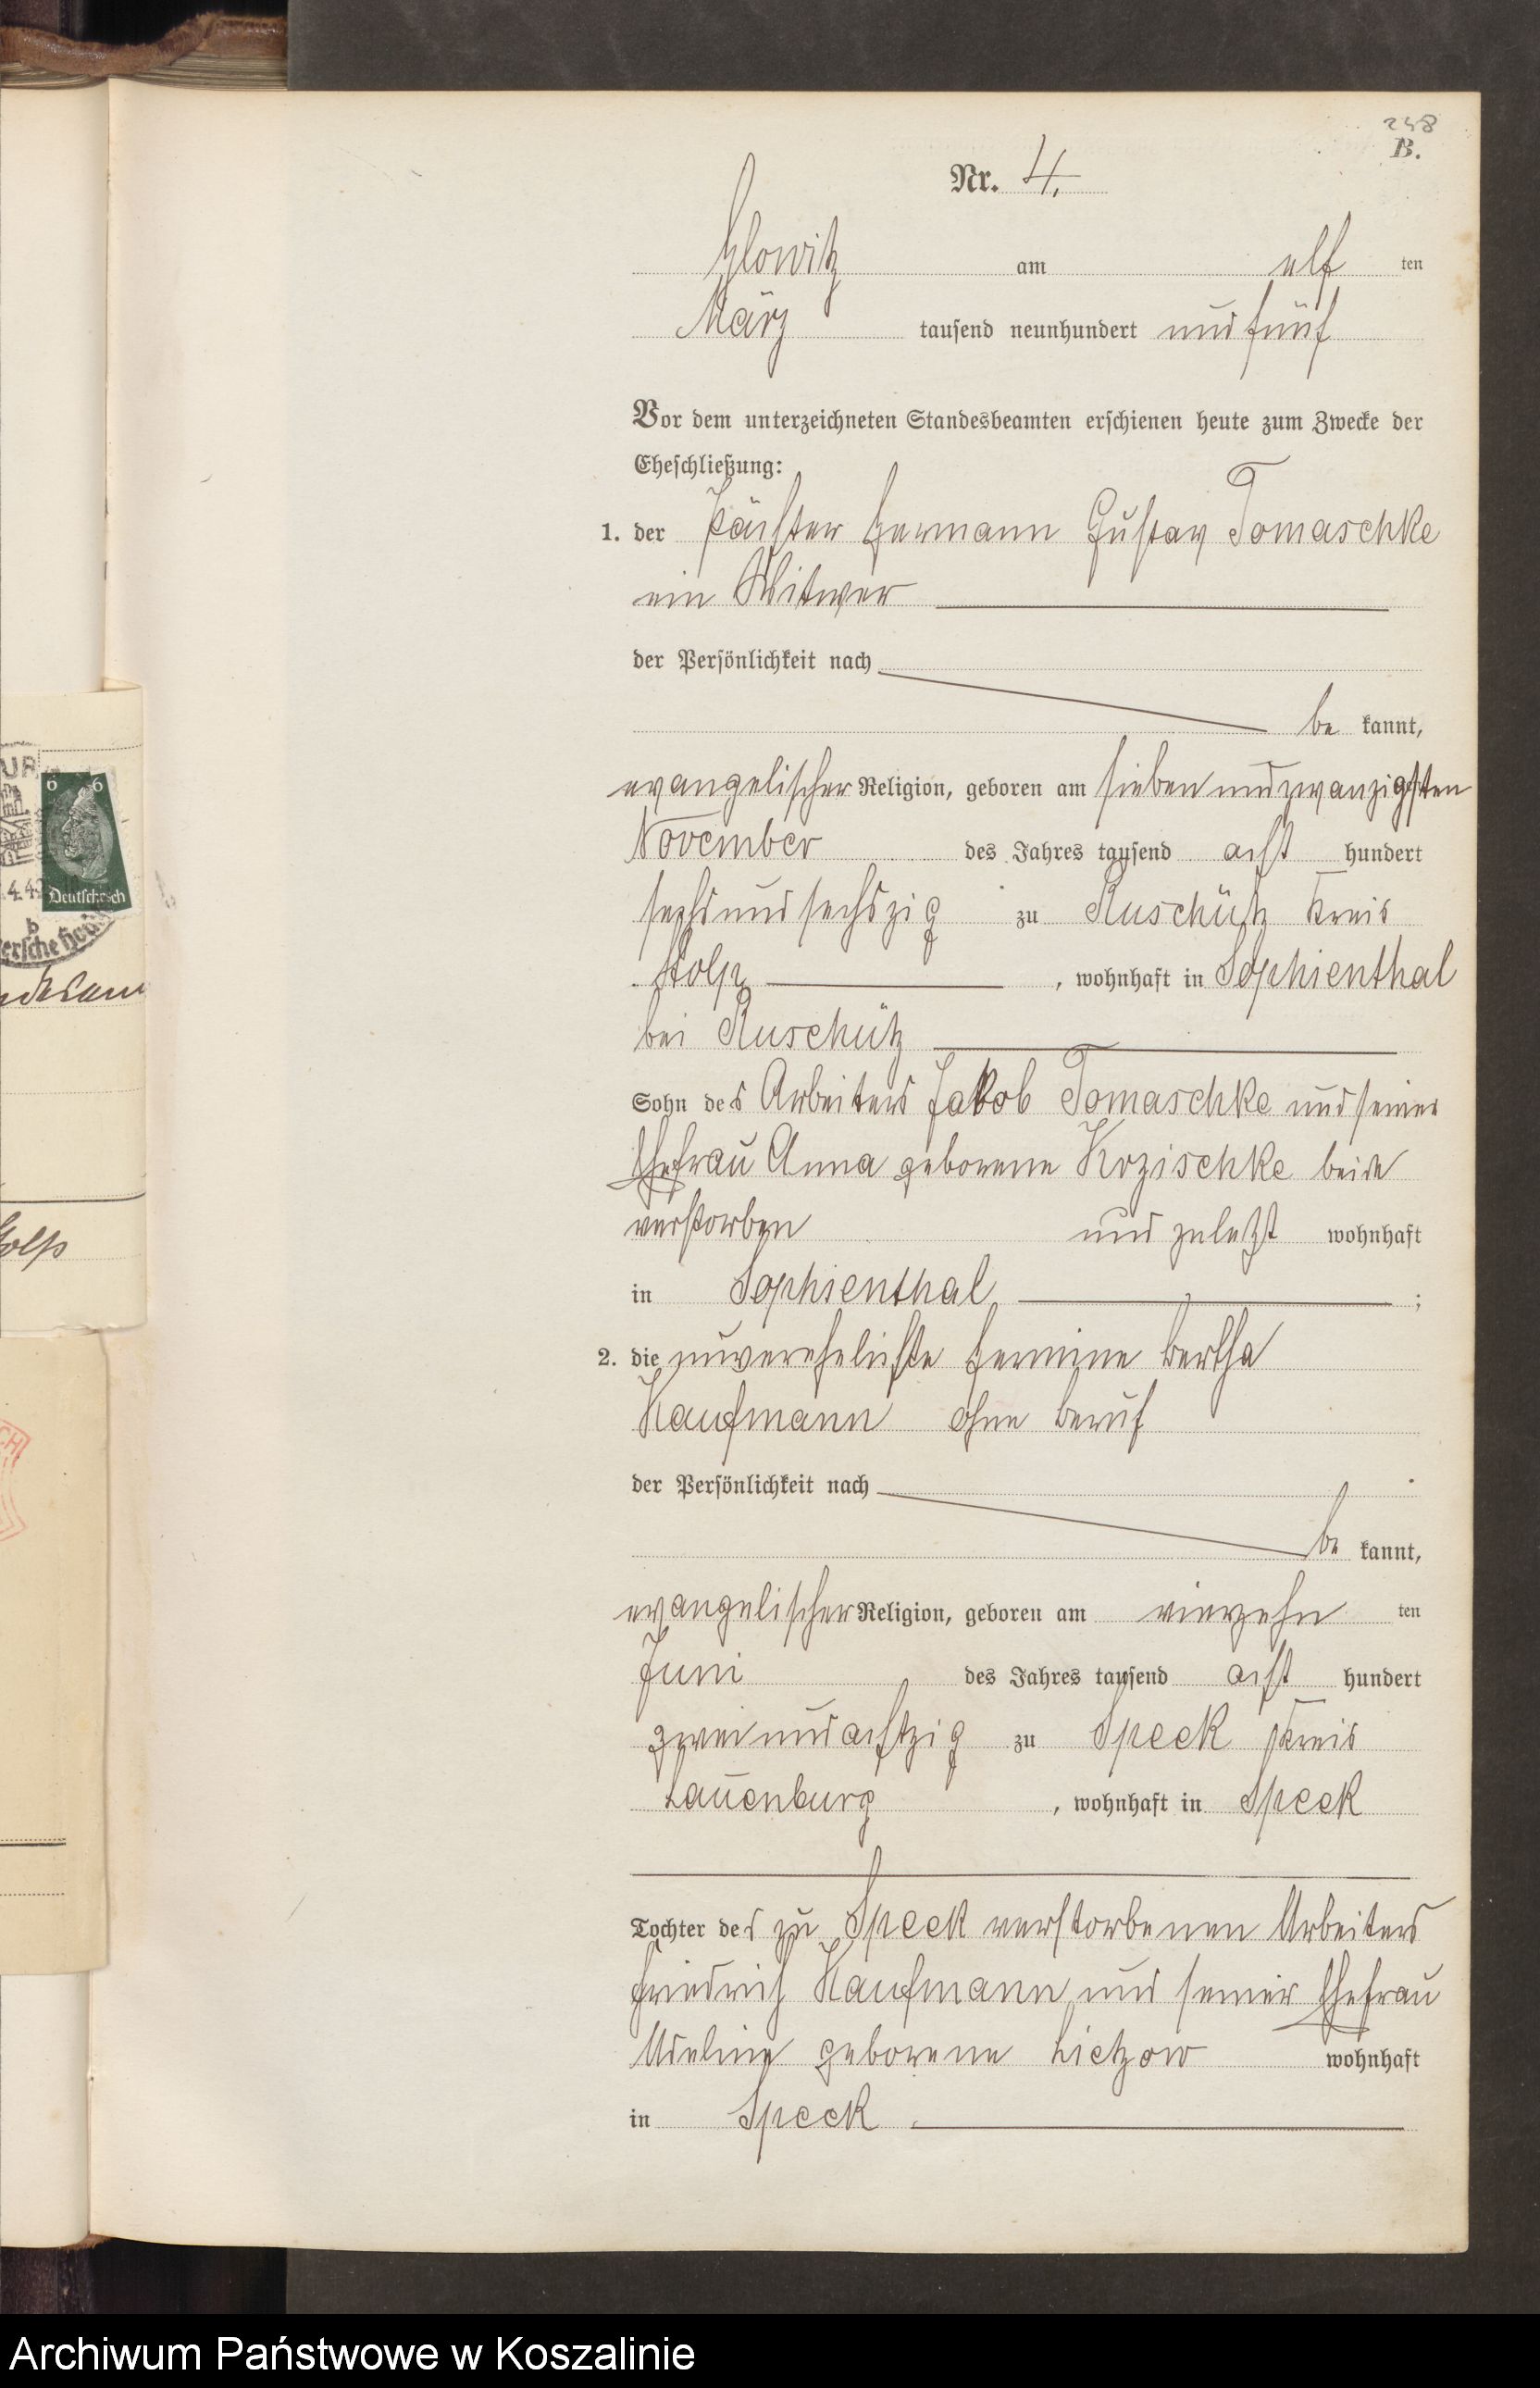 248
B.
Nr. 4.
Glowitz am elf ten
März tausend neunhundert und fünf
Vor dem unterzeichneten Standesbeamten erschienen heute zum Zwecke der
Eheschließung:
1. der Pächter Hermann Gustav Tomaschke
ein Witwer
der Persönlichkeit nach
be kannt,
evangelischer Religion, geboren am siebenundzwanzigsten
November des Jahres tausend acht hundert
sechsundsechszig zu Ruschütz Kreis
Stolp, wohnhaft in Sophienthal
bei Ruschütz
Sohn des Arbeiters Jakob Tomaschke und seiner
Ehefrau Anna geborene Krzischke beide
verstorben und zuletzt wohnhaft
in Sophienthal ;
2. die unverehelichte Hermine Bertha
Kaufmann ohne Beruf
der Persönlichkeit nach
be kannt,
evangelischer Religion, geboren am vierzehn ten
Juni des Jahres tausend acht hundert
zweiundachtzig zu Speck Kreis
Lauenburg, wohnhaft in Speck
Tochter des zu Speck verstorbenen Arbeiters
Friedrich Kaufmann und seiner Ehefrau
Adeline geborene Lietzow wohnhaft
in Speck.
6 6
Deutsches Reich
Archiwum Państwowe w Koszalinie